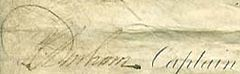 Durham. Captain